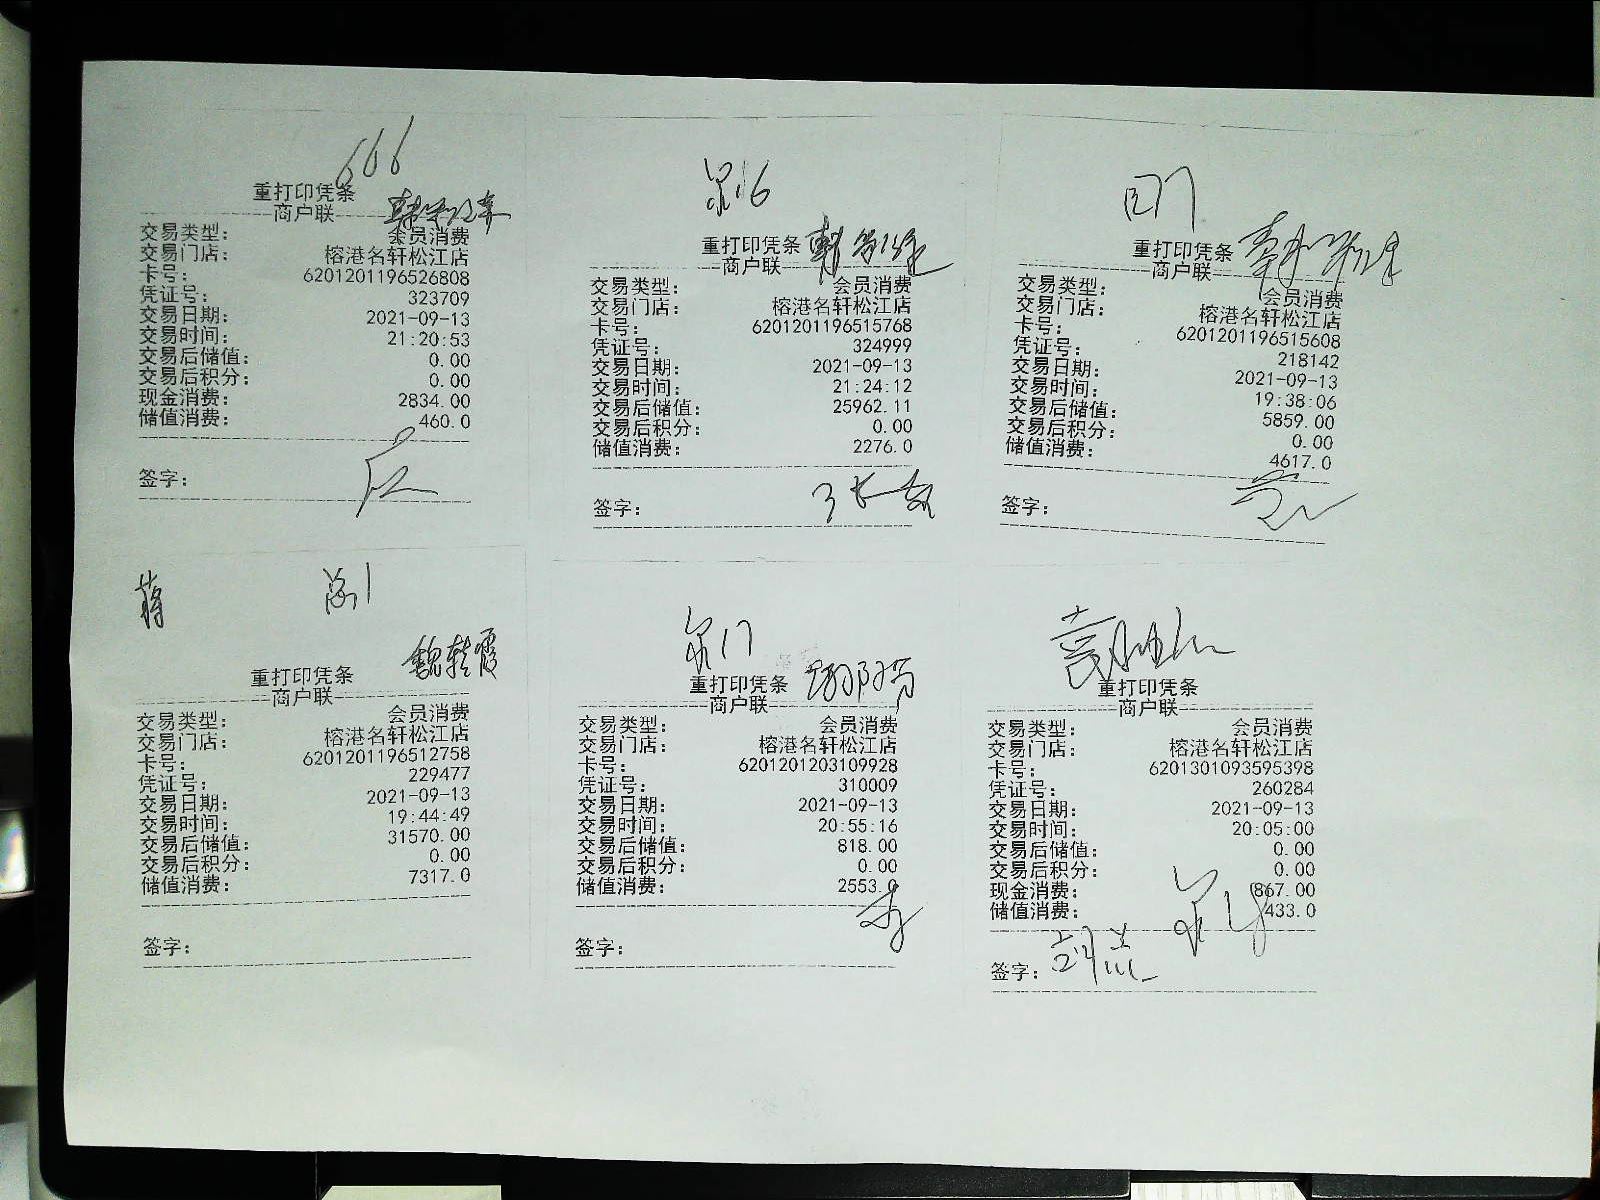 666
重打印凭条
商户联
交易类型: 会员消费
交易门店: 榕港名轩松江店
卡号: 6201201196526808
凭证号: 323709
交易日期: 2021-09-13
交易时间: 21:20:53
交易后储值: 0.00
交易后积分: 0.00
现金消费: 2834.00
储值消费: 460.0
签字:
泉16
重打印凭条
商户联
交易类型: 会员消费
交易门店: 榕港名轩松江店
卡号: 6201201196515768
凭证号: 324999
交易日期: 2021-09-13
交易时间: 21:24:12
交易后储值: 25962.11
交易后积分: 0.00
储值消费: 2276.0
签字:
重打印凭条
商户联
交易类型: 会员消费
交易门店: 榕港名轩松江店
卡号: 6201201196515608
凭证号: 218142
交易日期: 2021-09-13
交易时间: 19:38:06
交易后储值: 5859.00
交易后积分: 0.00
储值消费: 4617.0
签字:
蒋
魏轶霞
重打印凭条
商户联
交易类型: 会员消费
交易门店: 榕港名轩松江店
卡号: 6201201196512758
凭证号: 229477
交易日期: 2021-09-13
交易时间: 19:44:49
交易后储值: 31570.00
交易后积分: 0.00
储值消费: 7317.0
签字:
泉17
重打印凭条
商户联
交易类型: 会员消费
交易门店: 榕港名轩松江店
卡号: 6201201203109928
凭证号: 310009
交易日期: 2021-09-13
交易时间: 20:55:16
交易后储值: 818.00
交易后积分: 0.00
储值消费: 2553.0
签字:
重打印凭条
商户联
交易类型: 会员消费
交易门店: 榕港名轩松江店
卡号: 6201301093595398
凭证号: 260284
交易日期: 2021-09-13
交易时间: 20:05:00
交易后储值: 0.00
交易后积分: 0.00
现金消费: 867.00
储值消费: 433.0
签字: